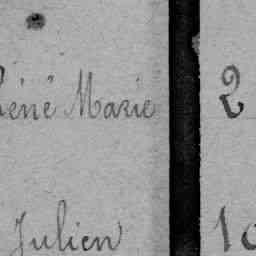 Réné Marie 2
Julien 10